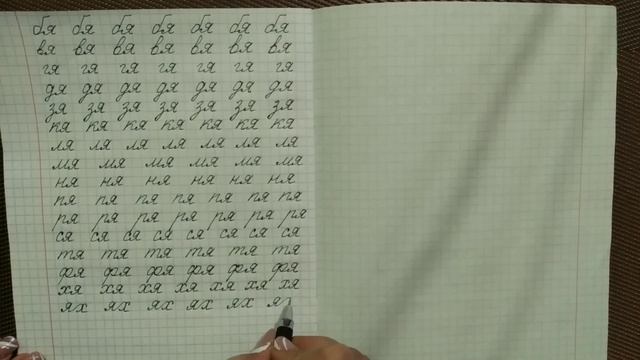 бя бя бя бя бя бя бя
вя вя вя вя вя вя вя
гя гя гя гя гя гя гя
дя дя дя дя дя дя дя
зя зя зя зя зя зя зя
кя кя кя кя кя кя кя
ля ля ля ля ля ля ля
мя мя мя мя мя мя
ня ня ня ня ня ня
пя пя пя пя пя пя пя
ря ря ря ря ря ря ря
ся ся ся ся ся ся ся
тя тя тя тя тя тя
фя фя фя фя фя фя
хя хя хя хя хя хя хя
ях ях ях ях ях ях